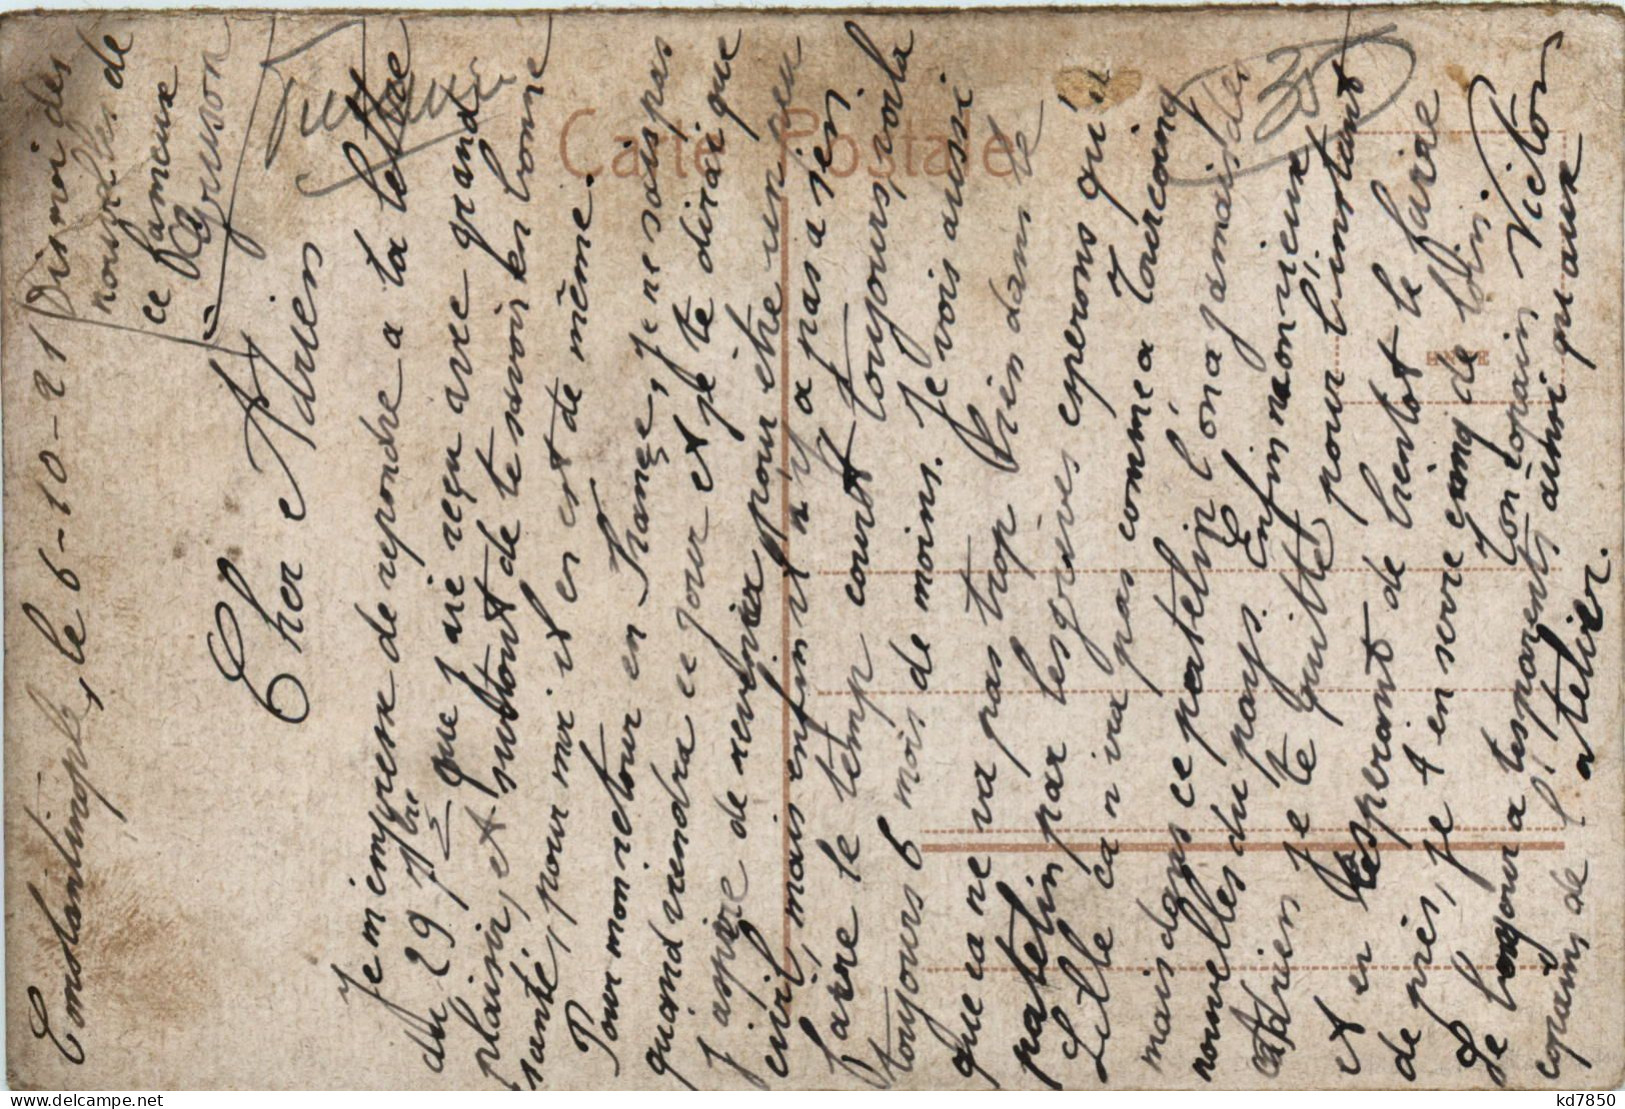 Constantinople, le 6-10-21
Dis moi des
nouvelles de
ce fameux
Gruson
Cher Adrien
Je m'empresse de repondre a ta lettre
du 29 7bre que j'aie reçu avec grand
plaisir, et surtout de te savoir en bonne
santé, pour moi il en est de même.
Pour mon retour en France, je ne sais pas
quand viendra ce jour et je te dirai que
J'aspire de revenir pour être un peu
civil, mais enfin il n'y a pas a s'en
faire le temp court toujours, voila
toujours 6 mois de moins. Je vois aussi
que ca ne va pas trop bien dans le
patelin par les grèves esperons qu'a
Lille ca n'ira pas comme a Tourcoing
mais dans ce patelin l'on a jamais des
nouvelles du pays. Enfin mon vieux
Adrien je te quitte pour l'instant
et en esperant de bientot le faire
de près, je t'en serre cinq de loin.
Ton copain Victor
Le bonjour a tes parents ainsi qu'aux
copains de l'atelier.
Carte Postale
35
kd7850